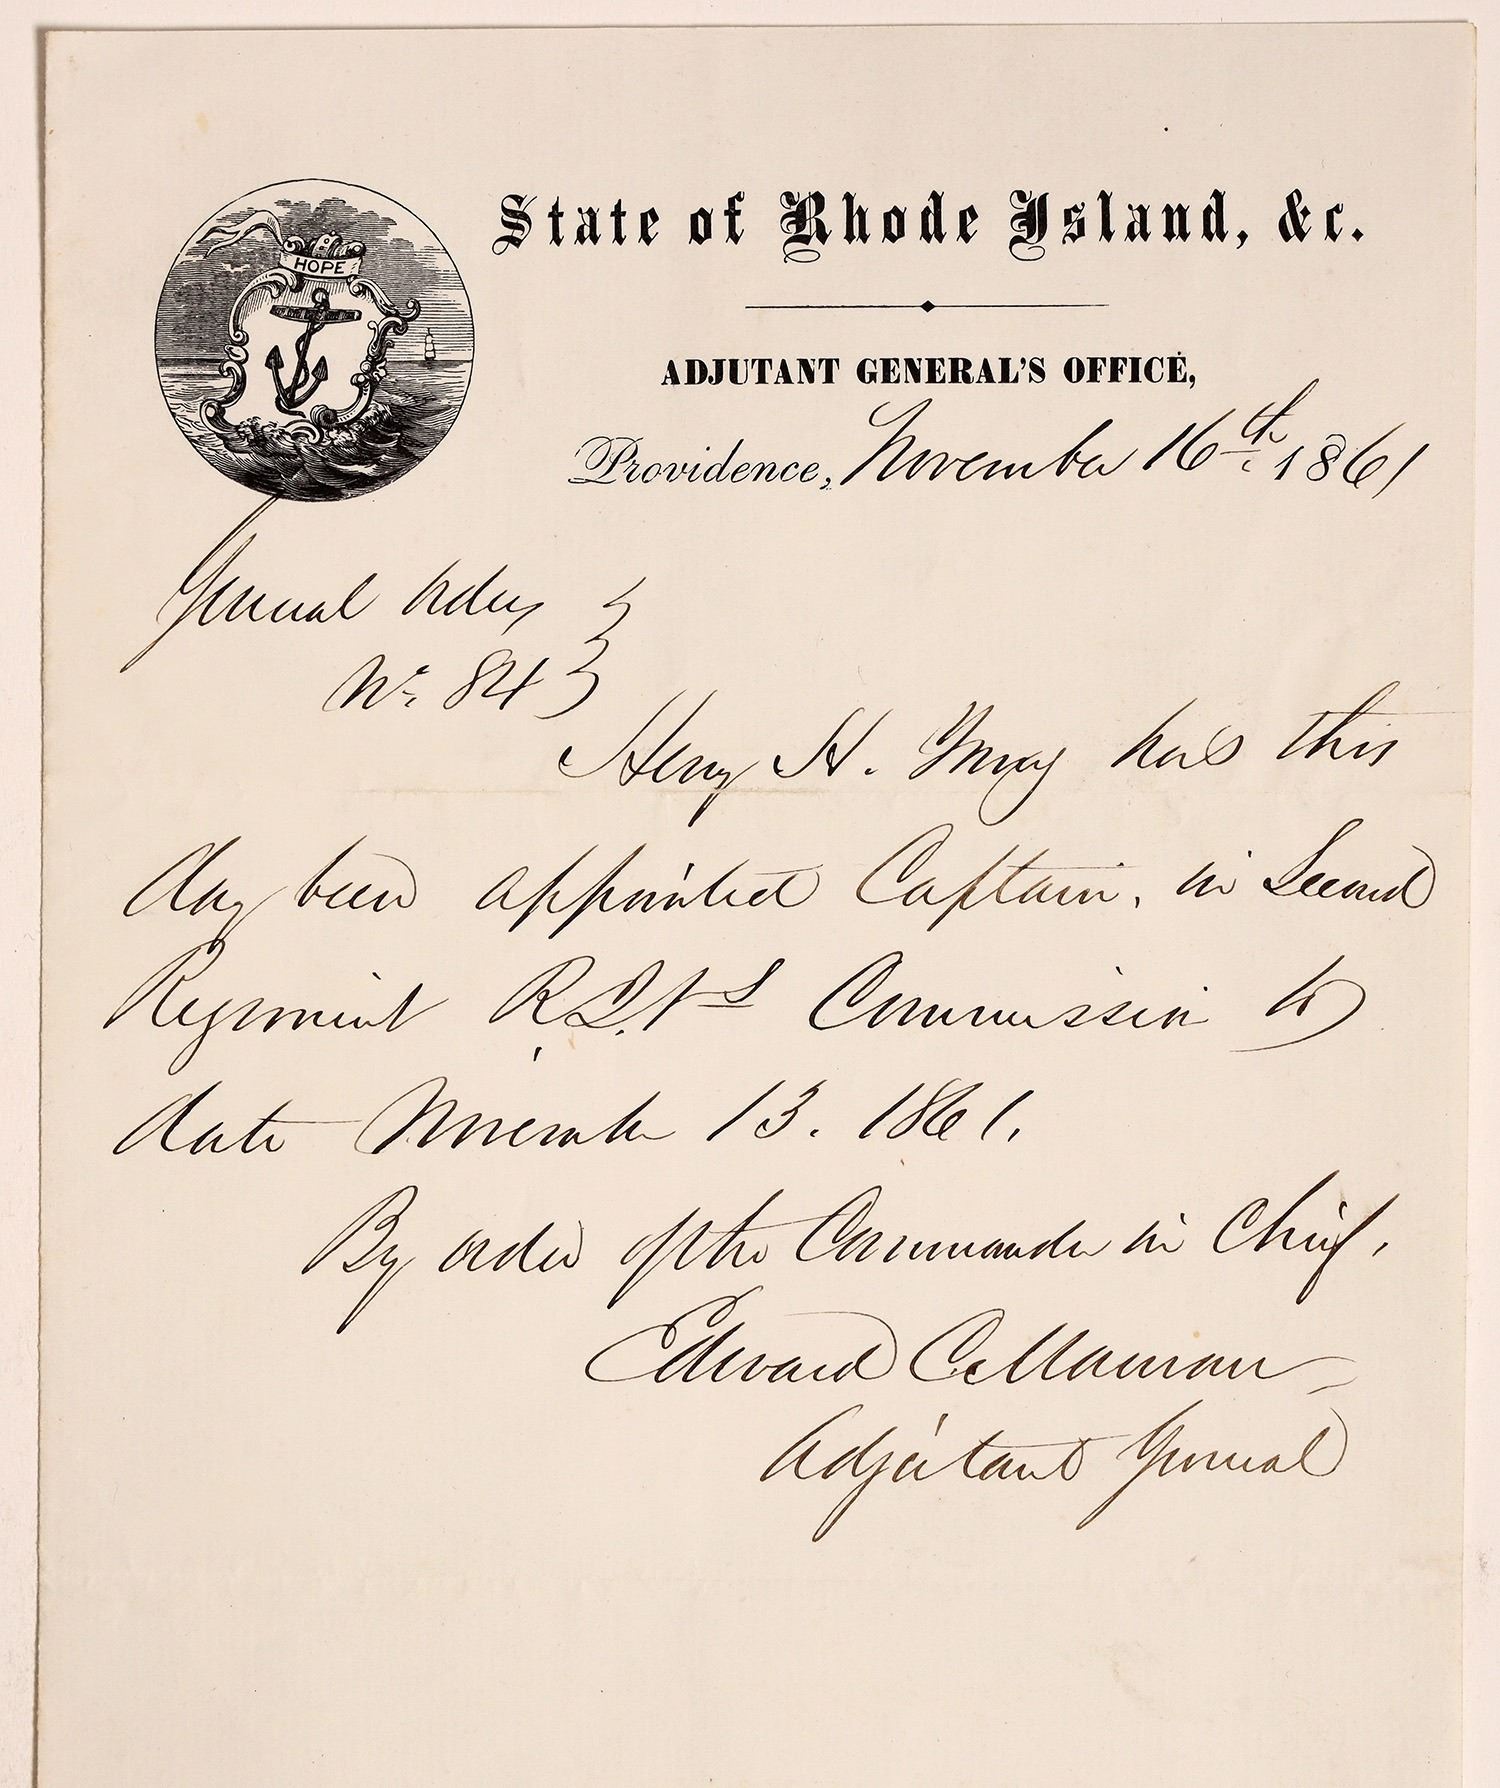 HOPE
State of Rhode Island, &c.
ADJUTANT GENERAL'S OFFICE,
Providence, November 16th. 1861
General Orders
No. 84
Henry H. Young has this
day been appointed Captain, in Second
Regiment R.I.Vs Commission to
date November 13. 1861.
By order of the Commander in Chief,
Edward C. Mauran
Adjutant General